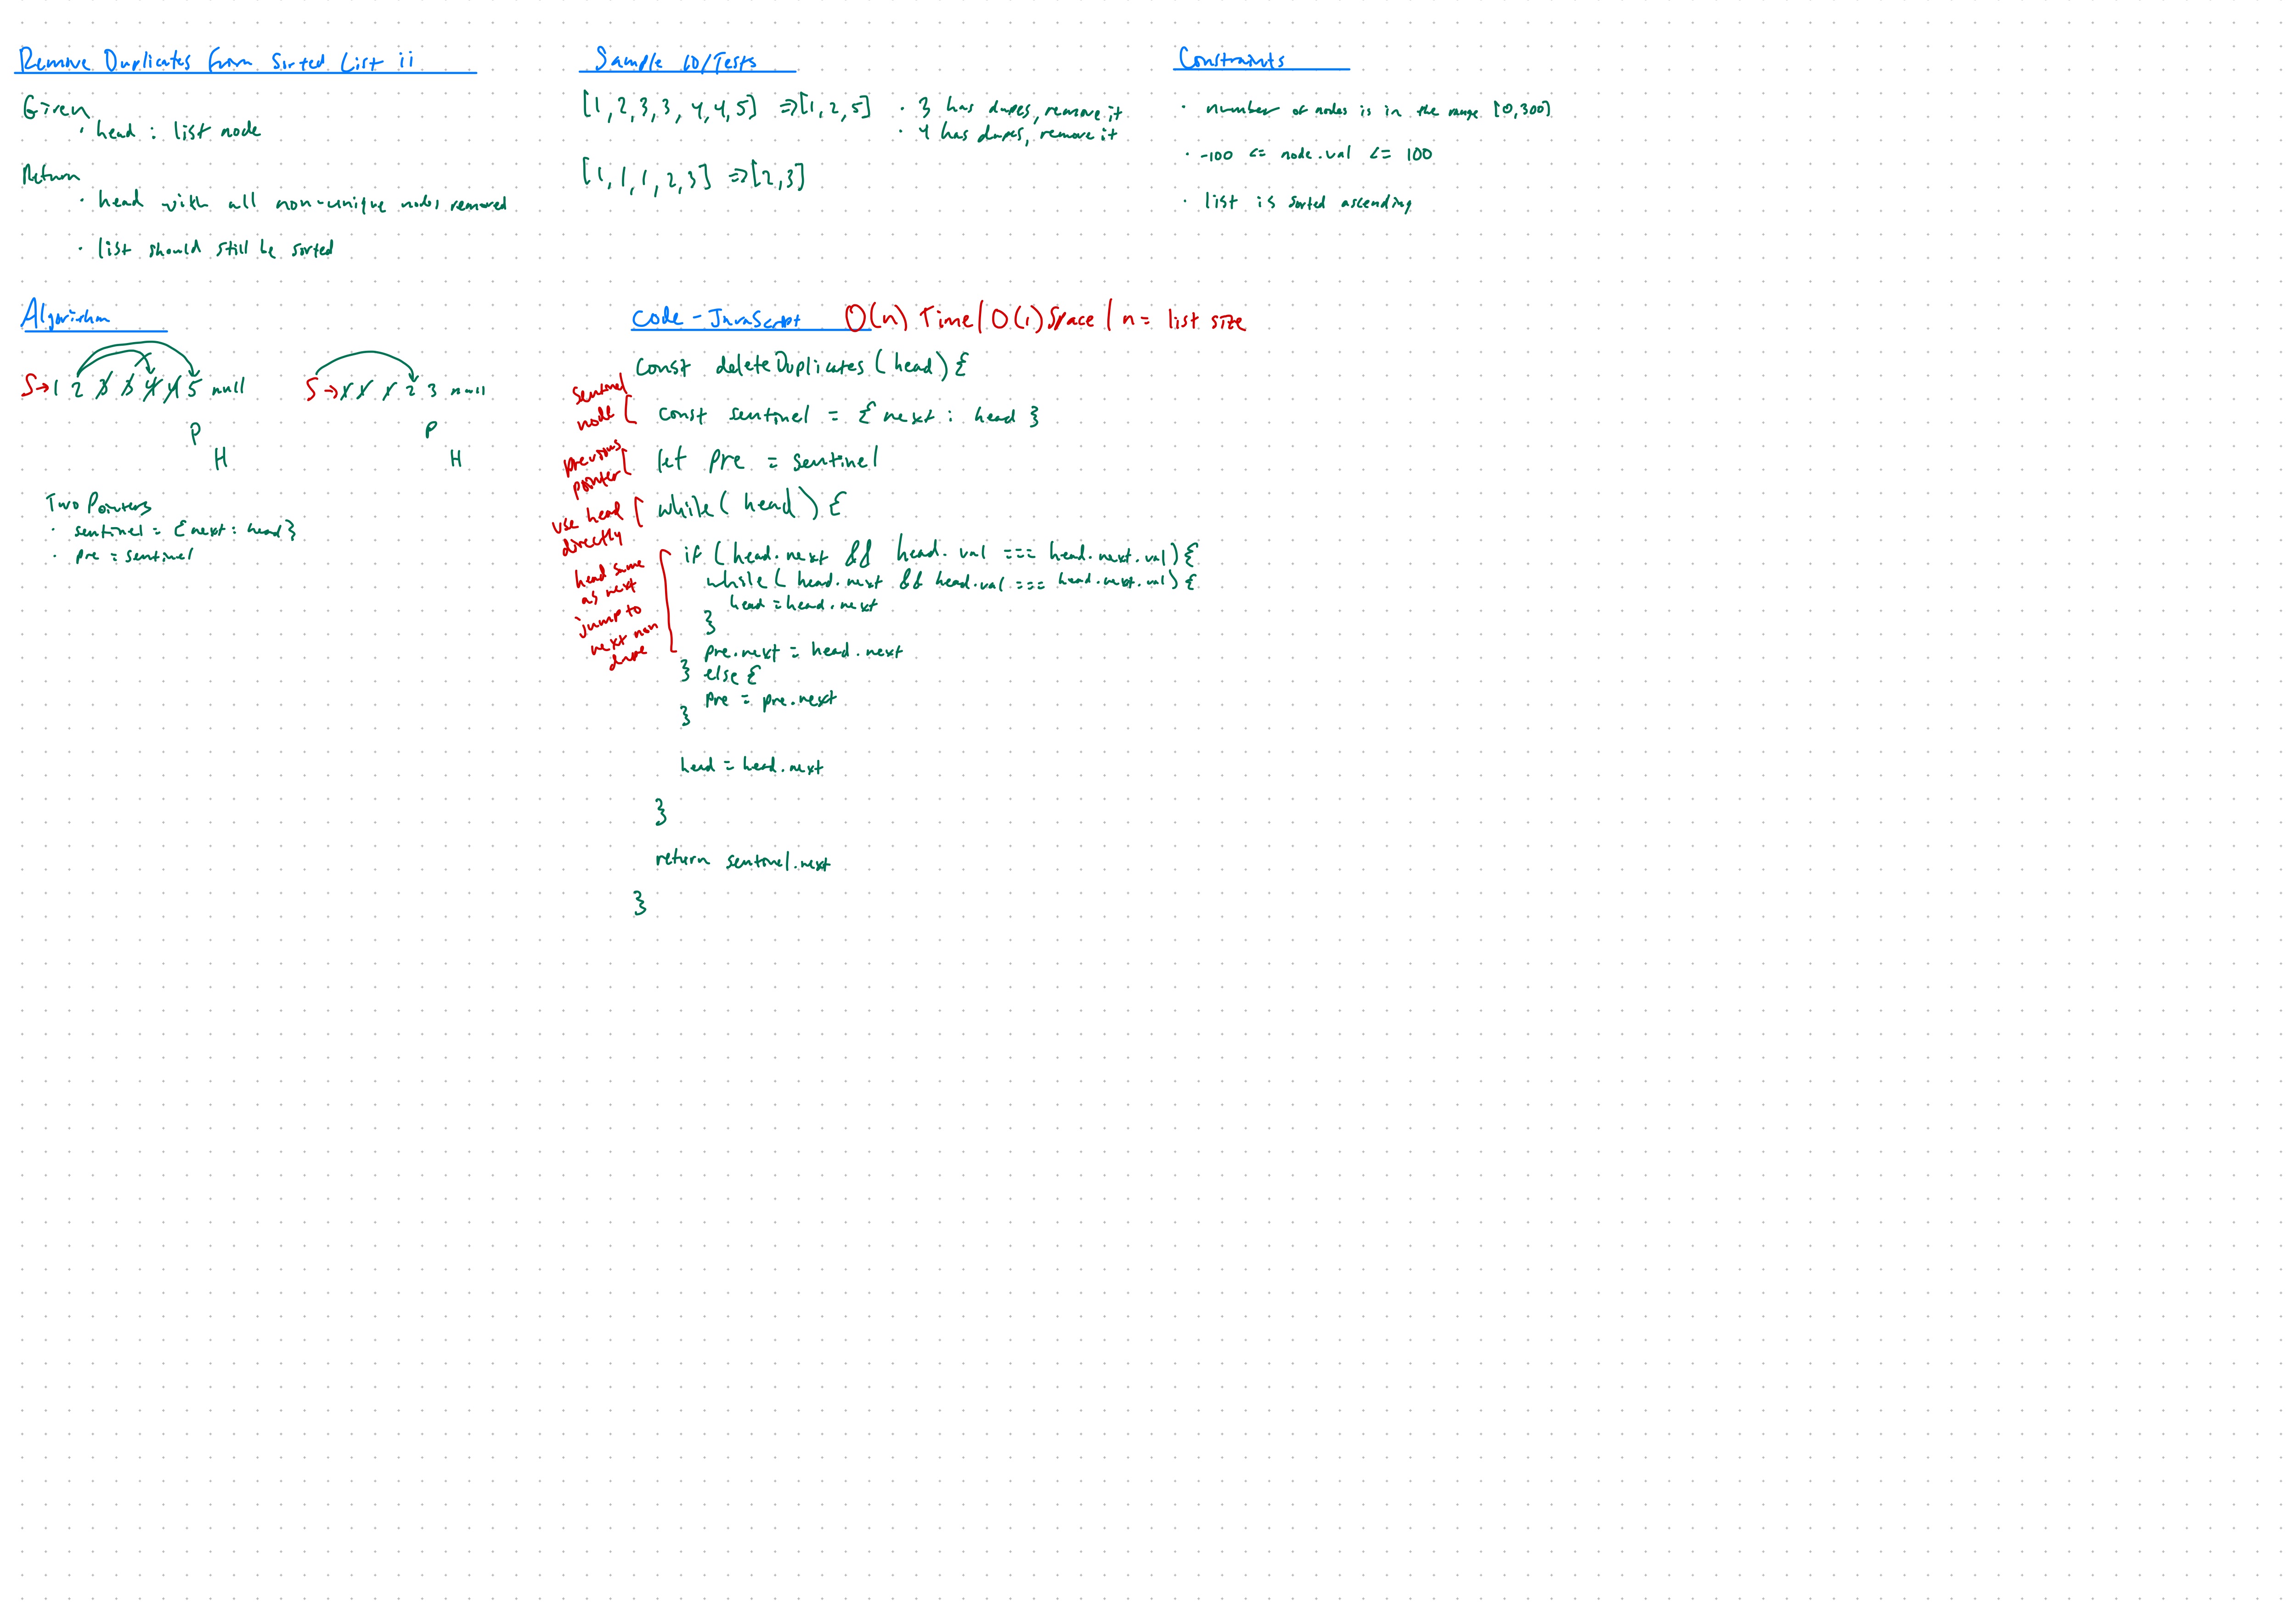 Remove Duplicates from Sorted List ii
Given
· head : list node
Return
· head with all non-unique nodes removed
· list should still be sorted
Sample IO/Tests
[1,2,3,3,4,4,5] => [1,2,5]
· 3 has dupes, remove it
· 4 has dupes, remove it
[1,1,1,2,3] => [2,3]
Constraints
· number of nodes is in the range [0,300]
· -100 <= node.val <= 100
· list is sorted ascending
Algorithm
S→1 2 3 3 4 4 5 null
P
H
S→1 1 1 2 3 null
P
H
Two Pointers
· sentinel = {next : head}
· pre = sentinel
Code - JavaScript O(n) Time / O(1) Space / n = list size
const deleteDuplicates (head) {
sentinel
node
const sentinel = { next : head }
previous
pointer
let pre = sentinel
use head
directly
while ( head ) {
head same
as next
jump to
next non
dupe
if ( head.next && head.val === head.next.val) {
while ( head.next && head.val === head.next.val) {
head = head.next
}
pre.next = head.next
} else {
pre = pre.next
}
head = head.next
}
return sentinel.next
}